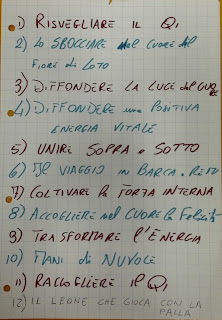 1) RISVEGLIARE IL QI
2) LO SBOCCIARE nel CUORE del
FIORE di LOTO
3) DIFFONDERE LA LUCE del CUORE
4) DIFFONDERE una POSITIVA
ENERGIA VITALE
5) UNIRE SOPRA e SOTTO
6) IL VIAGGIO in BARCA a REMI
7) COLTIVARE la FORZA INTERNA
8) ACCOGLIERE nel CUORE la Felicità
9) TRASFORMARE l'ENERGIA
10) MANI di NUVOLE
11) RACCOGLIERE il QI
12) IL LEONE CHE GIOCA CON LA
PALLA